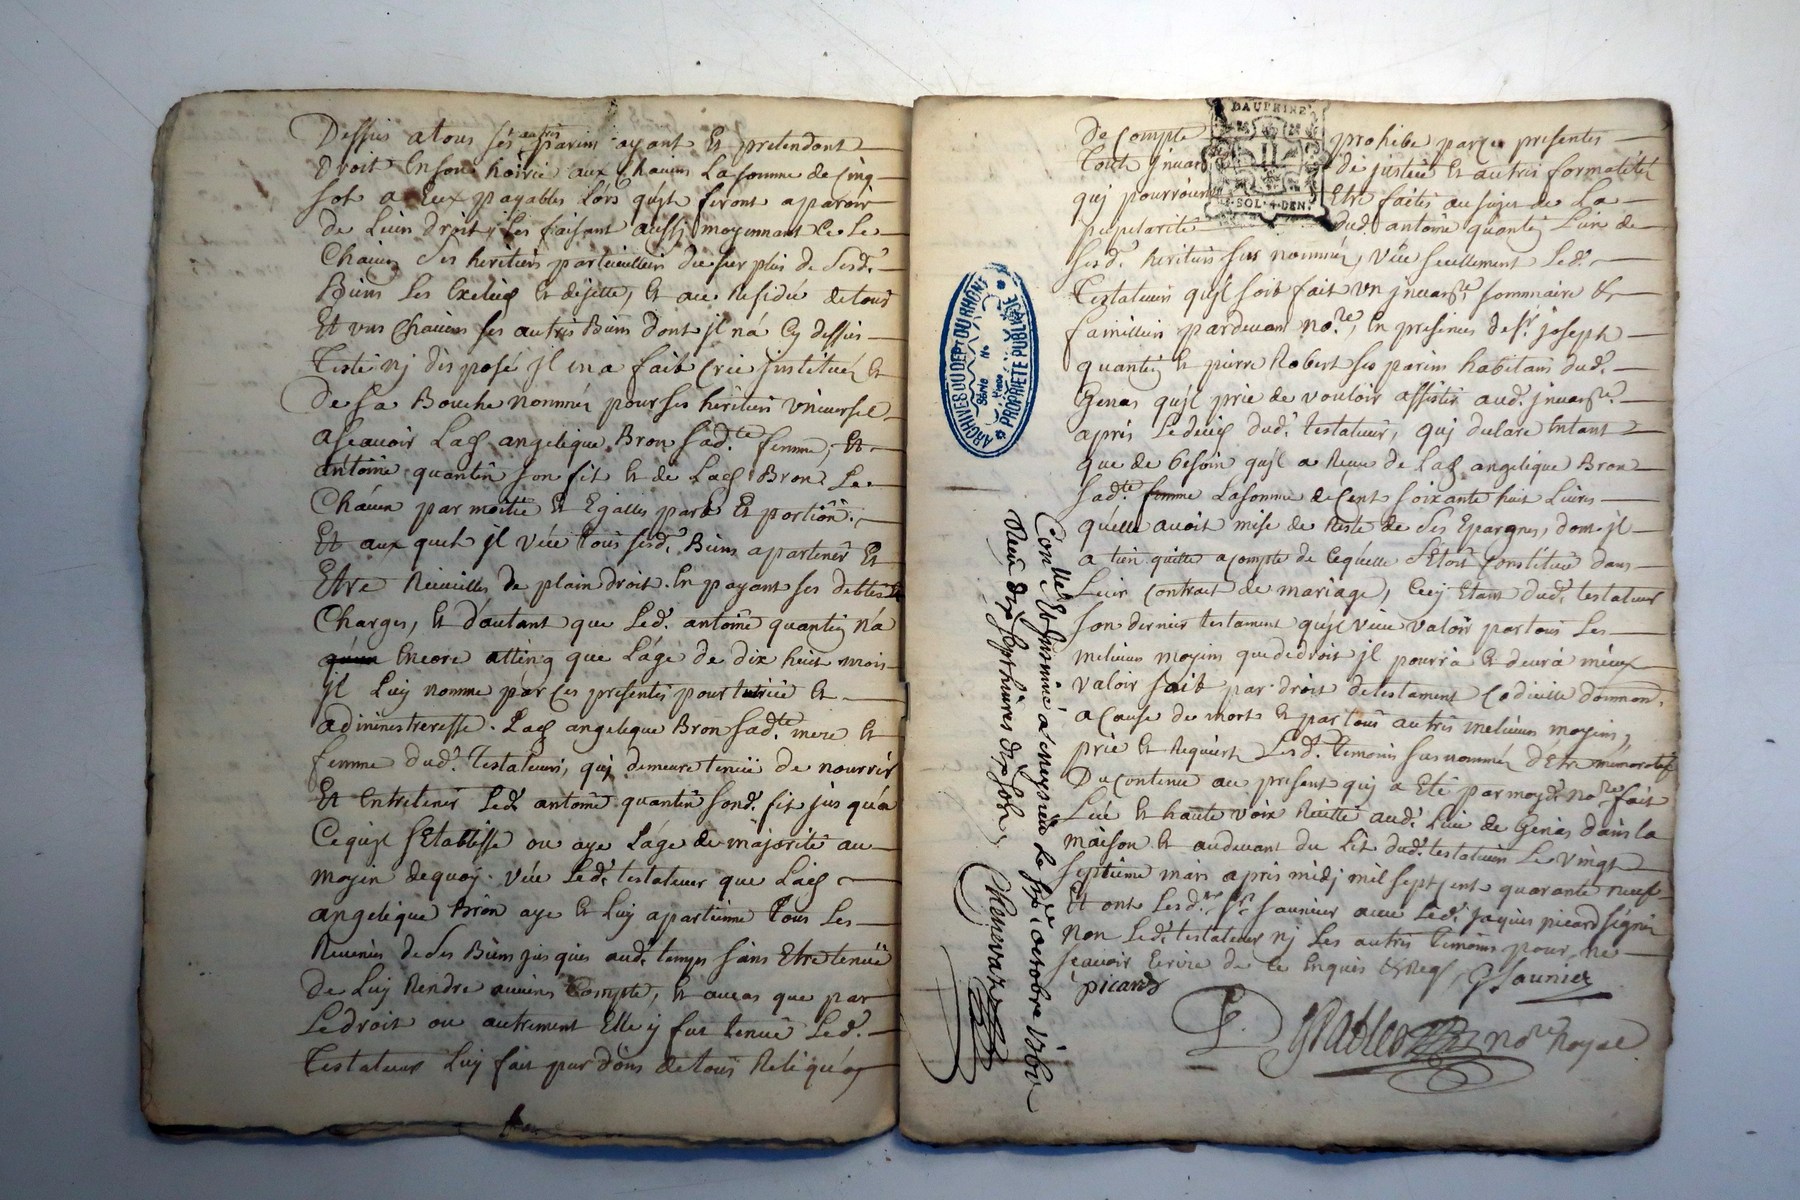 Dessus a tous ses autres parens ayant et pretendant
Droit en son hoirie aux chacuns la somme de cinq
sols a eux payables lors quils feront aparoir
de leur droit, les faisant aussi moyennant ce le
chacun ses heritiers particuilliers du surplus de sesd.
Biens les exclus et dejette, et au residu de tous
Et uns chacuns ses autres Biens dont jl n'a cy dessus
Testé nj disposé jl en a fait crée jnstitué et
De sa Bouche nommé pour ses heritiers vniversel
ascavoir angelique Bron sad.te femme, et
antoine quantin son fils et de Bron le
Chacun par moitié et Egalles part et portion.
Et aux quels jl veut tous sesd. Biens apartenir et
Etre recueillis de plain droit. En payant ses debtes et
Charges, et d'autant que led. antoine quantin n'a
encore atteing que l'age de dix huit mois
jl luy nomme par ces presentes pour tutrice et
administreresse. angelique Bron sad.te mere et
femme dud. testateur, quj demeure tenüe de nourrir
Et entretenir led. antoine quantin sond. fils jusqu'a
Ce qujl s'Etablisse ou aye l'age de majorité au
moyen dequoy. veut led. testateur que
angelique Bron aye et luy apartienne tous les
Revenus de ses Biens jusques aud. temps sans Etre tenüe
de luy rendre aucuns Compte, et au cas que par
Le droit ou autrement Elle y fut tenue led.
Testateur luy fait pur dons de tous
de compte prohibe par ces presentes
toute de justice et autres formalités
quj pourroient Etre faites au sujet de la
pupilarité dud. antoine quantin l'un de
sesd. heritiers sus nommés, veut seullement led.
Testateur qujl soit fait un sommaire et
familliers pardevant no.re, En presences de s.r joseph
quantin et pierre Robert ses parens habitans dud.
Genas qujl prie de vouloir assister aud.
après le deces dud. testateur, quj declare entant
que de besoin qujl a receu de angelique Bron
sad.te femme la somme de Cent soixante huit Livres
qu'elle avoit mise de reste de ses Epargnes, dont jl
a tien quitte a compte de ce qu'elle s'étoit constituée dans
Leur contract de mariage, Cecy Etant dud. testateur
son dernier testament qujl veut valoir par tous les
meilleurs moyens que de droit jl pourra et devra mieux
valoir soit par droit de testament codicille donnaon.
a cause de mort et par tous autres meilleurs moyens,
prie et requiert Lesd. temoins sus nommés d'Etre memoratifs
Du contenu au present quj a été par moyd. no.re fait
Leu et haute voix recitté aud. lieu de Genas dans la
maison et audevant du lit dud. testateur le vingt
septieme mars apres midj mil sept cent quarante neuf
Et ont lesd. s.r saunier avec led. jaques picard signés
non led. testateur nj les autres temoins pour ne
scavoir Ecrire de ce enquis et G Saunier
picard
no.re Royal
DAUPHINE
SOL 4 DEN.
ARCHIVES DU DEPT DU RHÔNE
PROPRIETE PUBLIQUE
Série No
Con.llé Et Insinué a Meyzieu le octobre
Reçu dix sept livres dix sols,